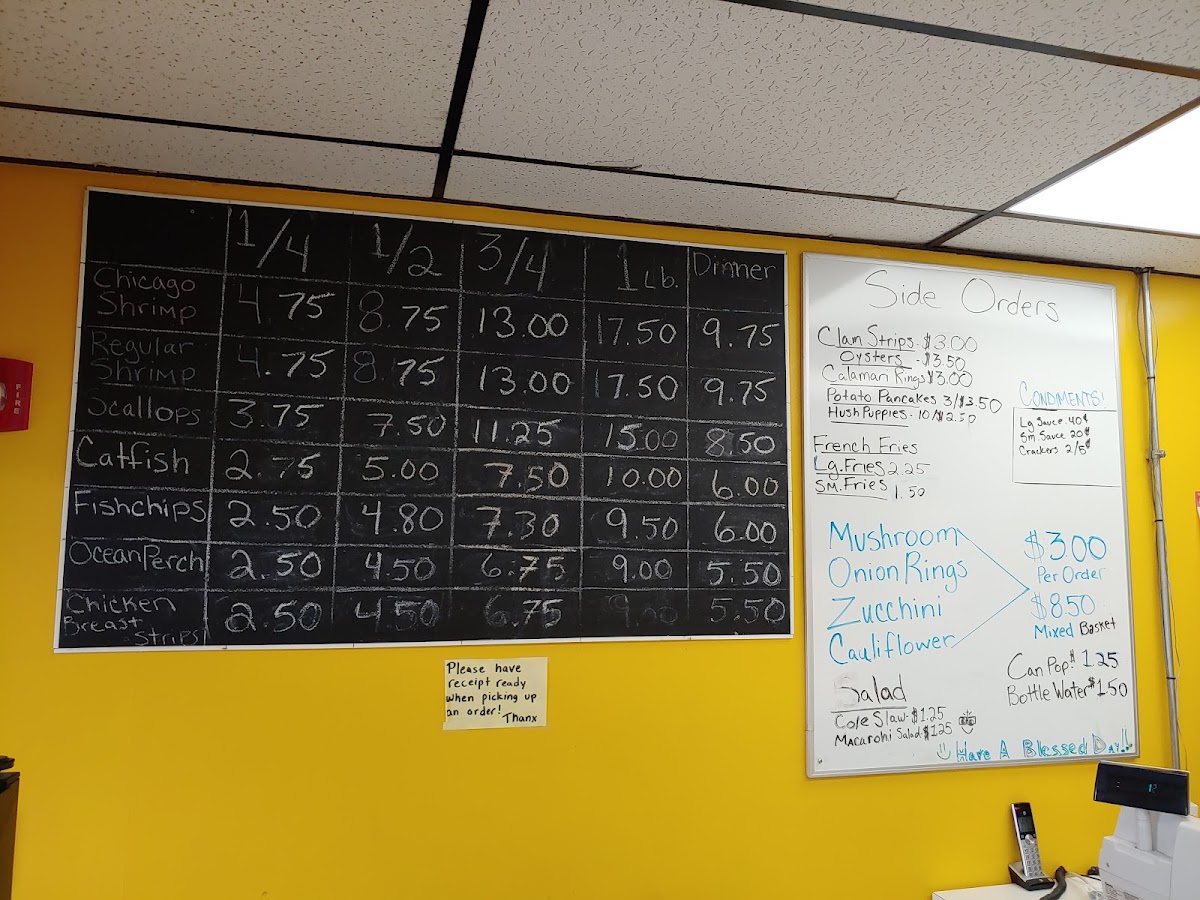 1/4 1/2 3/4 1 Lb. Dinner
Chicago
Shrimp 4.75 8.75 13.00 17.50 9.75
Regular
Shrimp 4.75 8.75 13.00 17.50 9.75
Scallops 3.75 7.50 11.25 15.00 8.50
Catfish 2.75 5.00 7.50 10.00 6.00
Fishchips 2.50 4.80 7.30 9.50 6.00
Ocean Perch 2.50 4.50 6.75 9.00 5.50
Chicken
Breast
Strips 2.50 4.50 6.75 9.00 5.50
Please have
receipt ready
when picking up
an order!
Thanx
Side Orders
Clam Strips - $3.00
Oysters - $3.50
Calamari Rings $3.00
Potato Pancakes 3/$3.50
Hush Puppies - 10/$2.50
French Fries
Lg. Fries 2.25
Sm. Fries 1.50
CONDIMENTS!
Lg Sauce 40¢
Sm. Sauce 20¢
Crackers 2/5¢
Mushroom
Onion Rings
Zucchini
Cauliflower
$3.00
Per Order
$8.50
Mixed Basket
Can Pop $1.25
Bottle Water $1.50
Salad
Cole Slaw - $1.25
Macaroni Salad - $1.25
Have A Blessed Day!!
FIRE